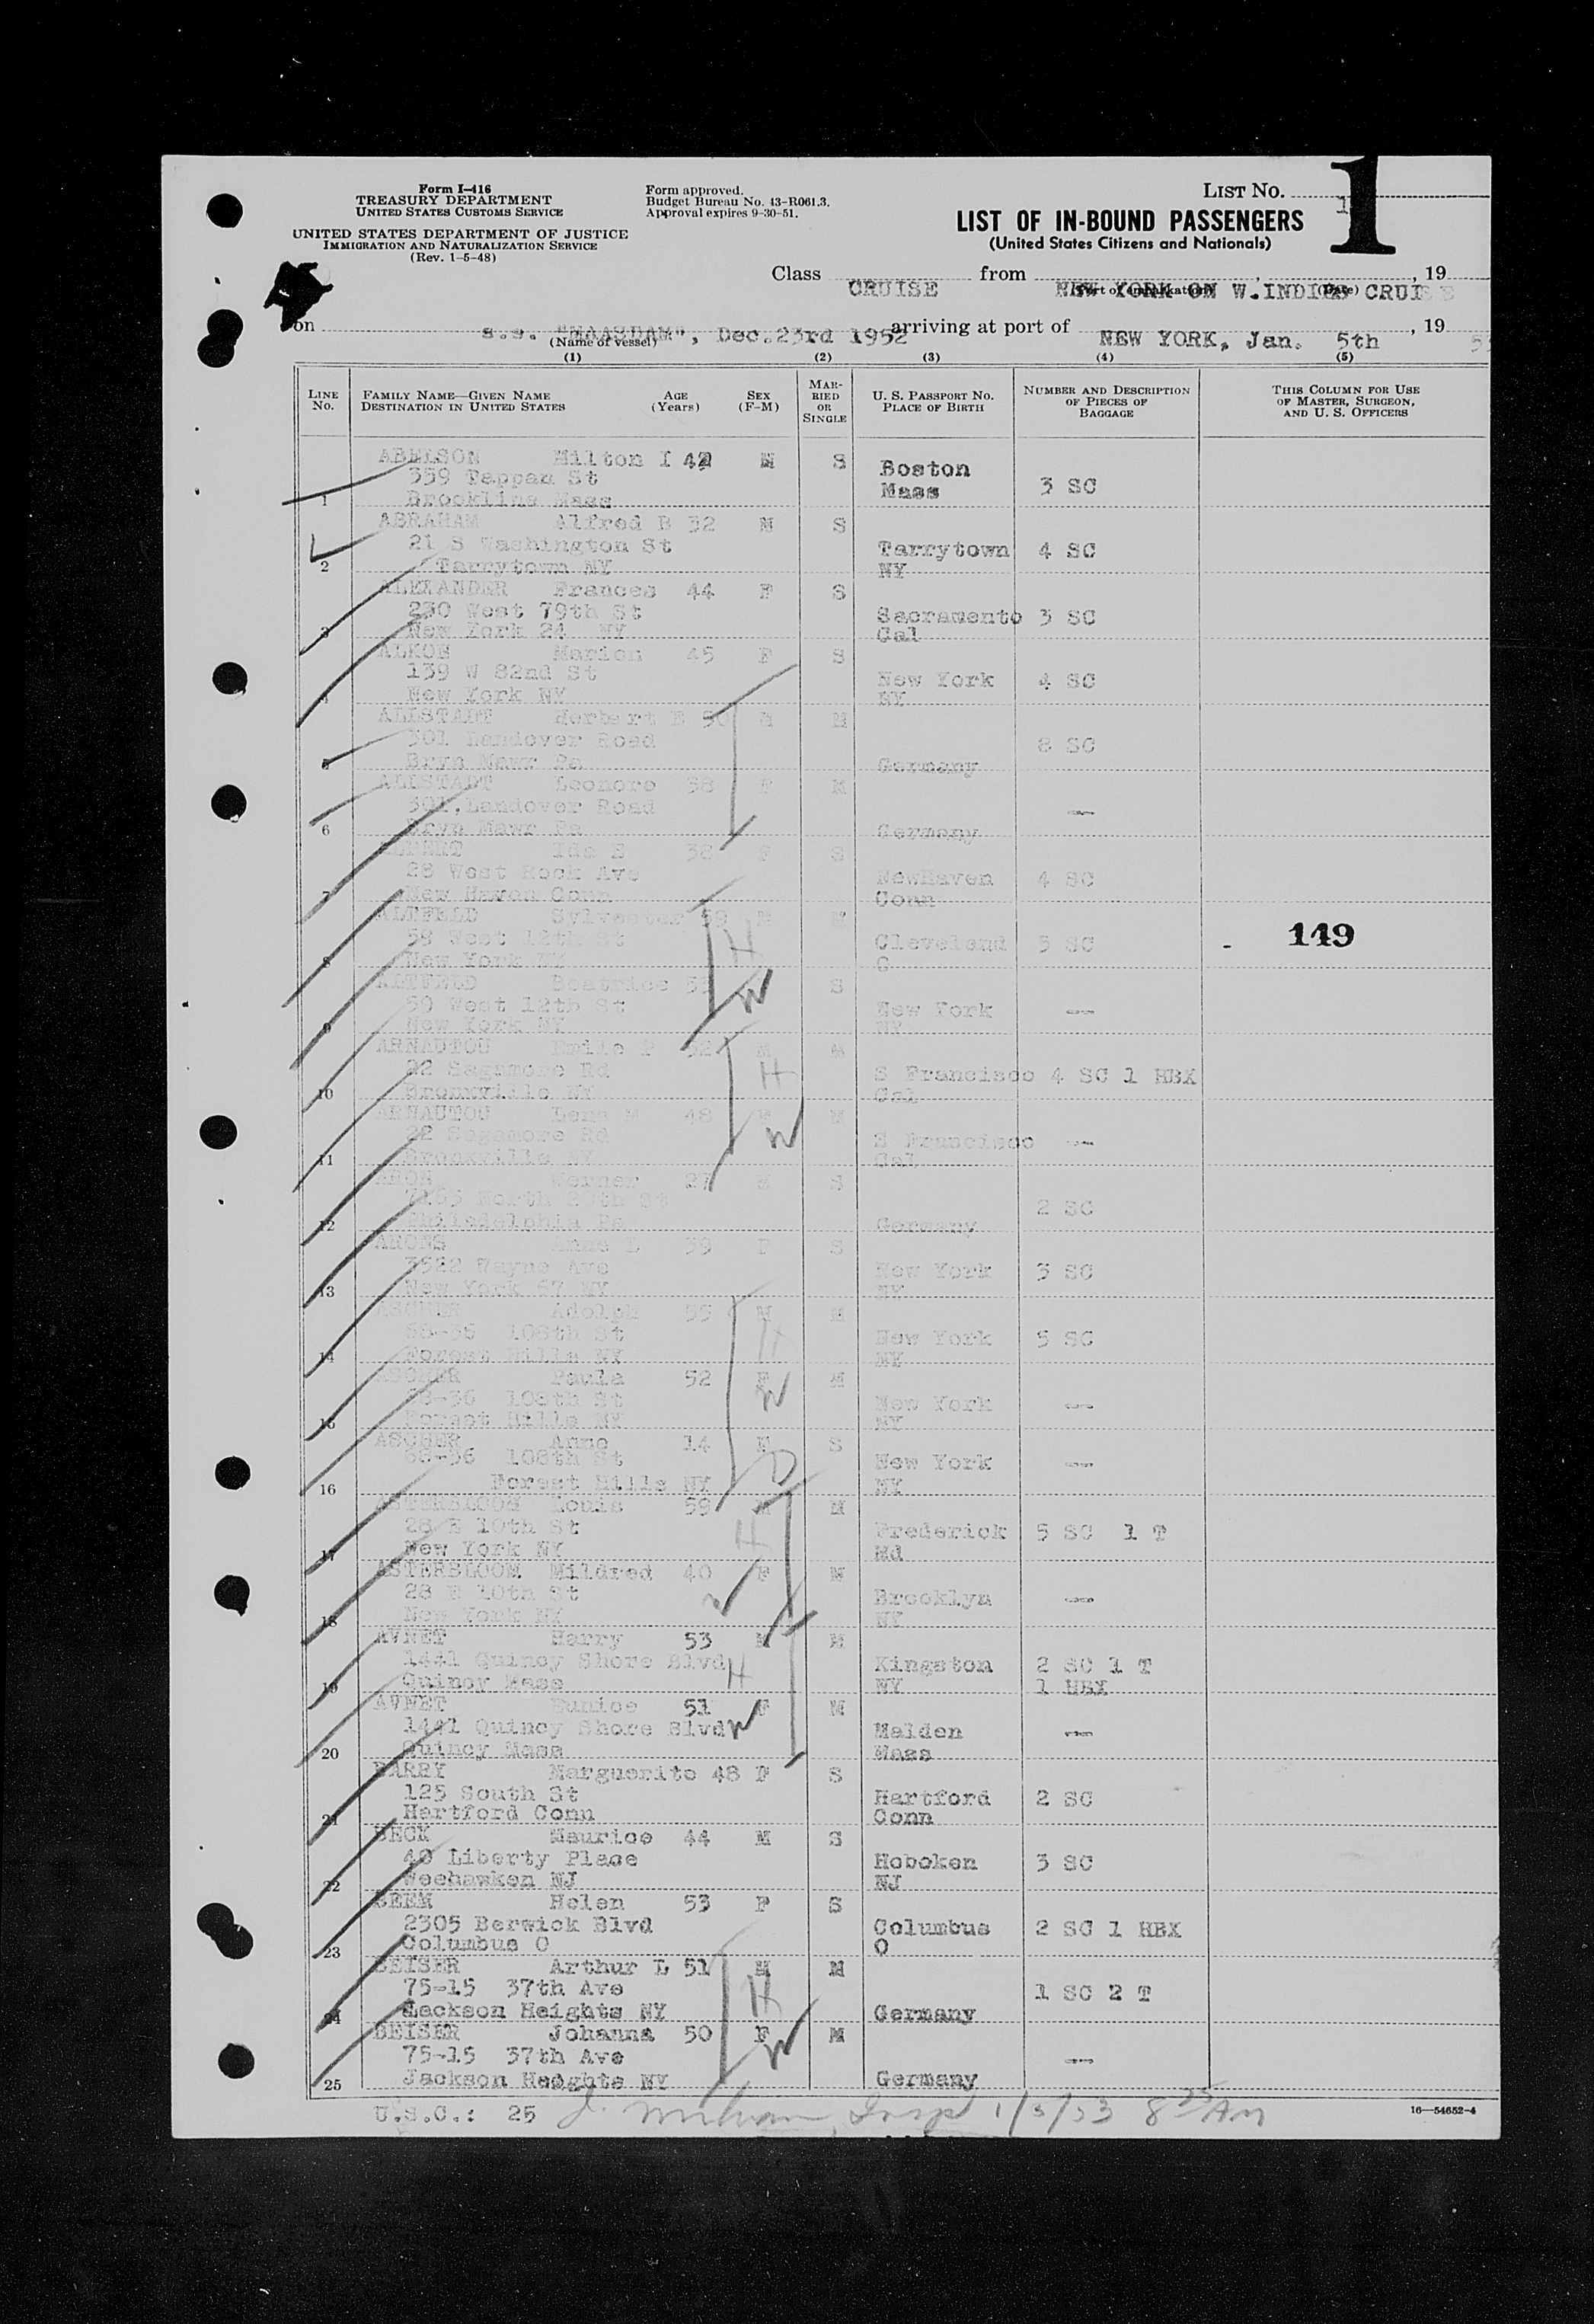 Form I-416
TREASURY DEPARTMENT
UNITED STATES CUSTOMS SERVICE
UNITED STATES DEPARTMENT OF JUSTICE
IMMIGRATION AND NATURALIZATION SERVICE
(Rev. 1-5-48)
Form approved.
Budget Bureau No. 43-R061.3.
Approval expires 9-30-51.
LIST NO. 1
1
LIST OF IN-BOUND PASSENGERS
(United States Citizens and Nationals)
Class CRUISE from NEW YORK ON W.INDIES CRUISE, 19
(Port of embarkation) (Date)
on s.s. "MAASDAM", Dec.23rd 1952 arriving at port of NEW YORK, Jan. 5th, 19 53
(Name of vessel)
(1) (2) (3) (4) (5)
LINE NO. FAMILY NAME—GIVEN NAME DESTINATION IN UNITED STATES AGE (Years) SEX (F-M) MARRIED OR SINGLE U. S. PASSPORT NO. PLACE OF BIRTH NUMBER AND DESCRIPTION OF PIECES OF BAGGAGE THIS COLUMN FOR USE OF MASTER, SURGEON, AND U. S. OFFICERS
ABELSON Milton I 42 M S
359 Tappan St Boston 3 SC
1 Brookline Mass Mass
ABRAHAM Alfred B 32 M S
21 S Washington St Tarrytown 4 SC
2 Tarrytown NY NY
ALEXANDER Frances 44 F S
230 West 79th St Sacramento 3 SC
3 New York 24 NY Cal
ALKON Marion 45 F S
139 W 82nd St New York 4 SC
4 New York NY NY
ALLSTADT Herbert M M
301 Landover Road 8 SC
5 Bryn Mawr Pa Germany
ALLSTADT Leonore 38 F M
301,Landover Road —
6 Bryn Mawr Pa Germany
Ida S 38 F S
28 West Rock Ave NewHaven 4 SC
7 New Haven Conn Conn
ALTFELD Sylvester 59 M M
59 West 12th St Cleveland 5 SC - 149
8 New York NY O H
ALTFELD Beatrice S
59 West 12th St New York —
9 New York NY NY W
ARNAUTOU Emile P 52 M M
22 Sagamore Rd S Francisco 4 SC 1 HBX
10 Bronxville NY Cal H
ARNAUTOU Lena M 48 F M
22 Sagamore Rd S Francisco —
11 Bronxville NY Cal W
ARON Werner 27 M S
North St 2 SC
12 Philadelphia Pa Germany
ARONS 39 F S
3522 Wayne Ave New York 3 SC
13 New York 67 NY NY
ASCHER Adolph 55 M M
68-36 108th St New York 5 SC
14 Forest Hills NY NY H
ASCHER Paula 52 F M
68-36 108th St New York —
15 Forest Hills NY NY W
ASCHER Anne 14 F S
68-36 108th St New York —
16 Forest Hills NY NY D
ASTERBLOOM Louis 59 M M
28 E 10th St Frederick 5 SC 1 T
17 New York NY Md H
ASTERBLOOM Mildred 40 F M
28 E 10th St Brooklyn —
18 New York NY NY W
AVNET Harry 53 M M
1441 Quincy Shore Blvd Kingston 2 SC 1 T
19 Quincy Mass NY 1 HBX H
AVNET Eunice 51 F M
1441 Quincy Shore Blvd Malden —
20 Quincy Mass Mass W
BARRY Marguerite 48 F S
125 South St Hartford 2 SC
21 Hartford Conn Conn
BECK Maurice 44 M S
40 Liberty Place Hoboken 3 SC
22 Weehawken NJ NJ
BEEM Helen 53 F S
2305 Berwick Blvd Columbus 2 SC 1 HBX
23 Columbus O O
BEISER Arthur L 51 M M
75-15 37th Ave 1 SC 2 T
24 Jackson Heights NY Germany H
BEISER Johanna 50 F M
75-15 37th Ave —
25 Jackson Heoghts NY Germany W
U.S.C.: 25 J. Insp 1/5/53 8 25 AM
16—54652-4